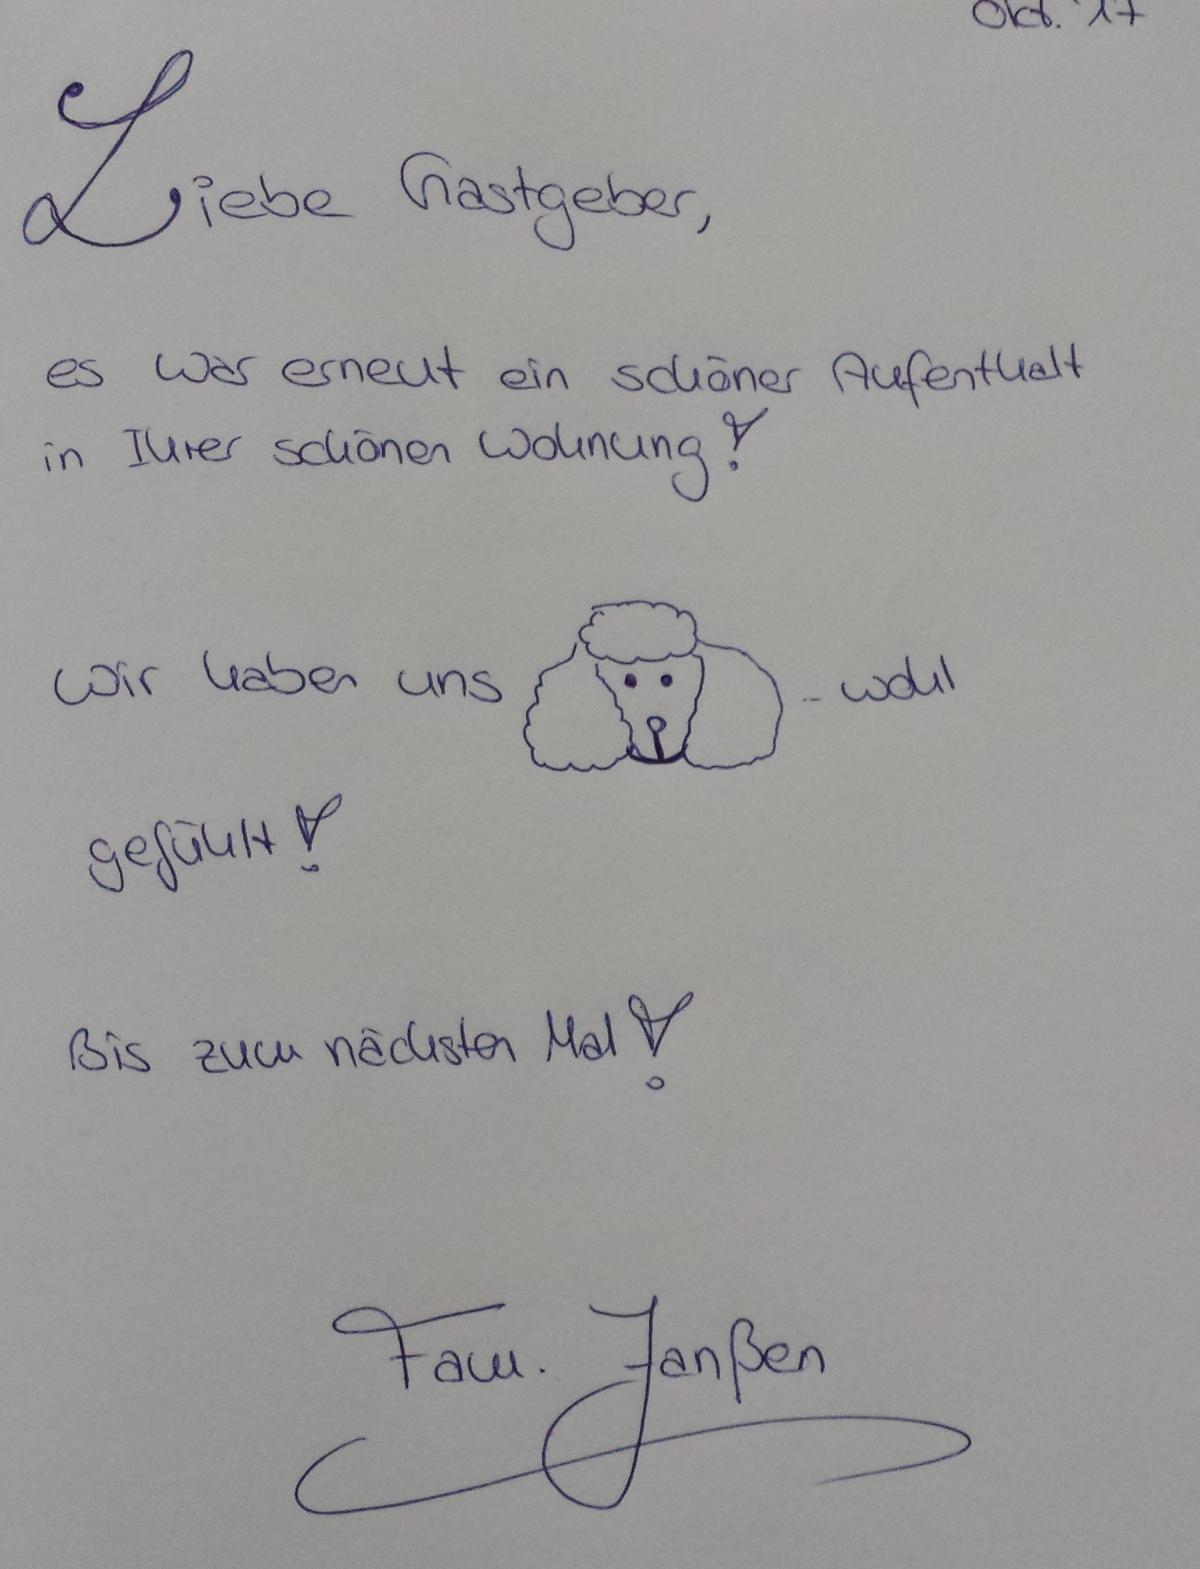 Okt. '17
Liebe Gastgeber,
es war erneut ein schöner Aufenthalt
in Ihrer schönen Wohnung!
wir haben uns -wohl
gefühlt!
Bis zum nächsten Mal!
Fam. Janßen